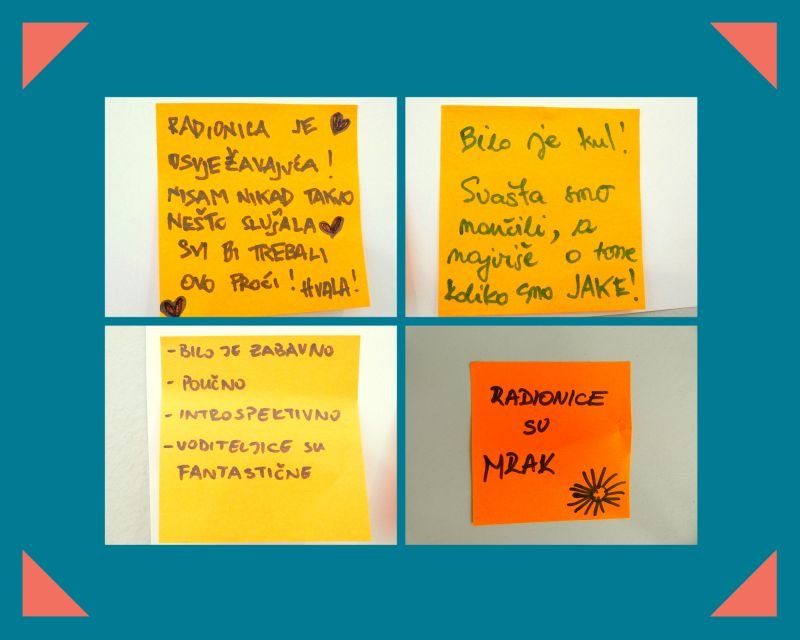 RADIONICA JE
OSVJEŽAVAJUĆA!
NISAM NIKAD TAKVO
NEŠTO SLUŠALA
SVI BI TREBALI
OVO PROĆI! HVALA!
Bilo je kul!
Svašta smo
naučili, a
najviše o tome
koliko smo JAKE!
- BILO JE ZABAVNO
- POUČNO
- INTROSPEKTIVNO
- VODITELJICE SU
FANTASTIČNE
RADIONICE
SU
MRAK